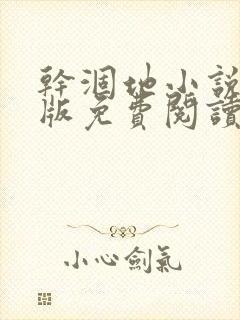 幹涸地小說
版免費閱讀
小心劍氣